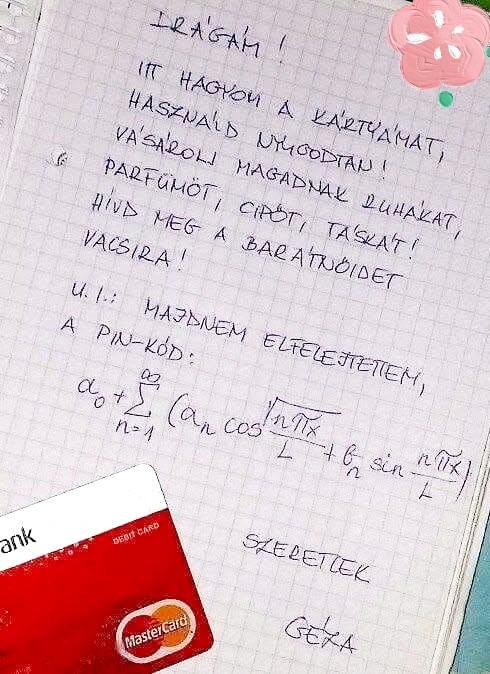 DRÁGÁM!
ITT HAGYOM A KÁRTYÁMAT,
HASZNÁLD NYUGODTAN!
VÁSÁROLJ MAGADNAK RUHÁKAT,
PARFÜMÖT, CIPŐT, TÁSKÁT!
HÍVD MEG A BARÁTNŐIDET
VACSIRA!
U.I.: MAJDNEM ELFELEJTETTEM,
A PIN-KÓD:
a₀ + ∑_{n=1}^{∞} (aₙ cos √(nπx)/L + bₙ sin nπx/L)
SZERETLEK
GÉZA
ank
DEBIT CARD
MasterCard